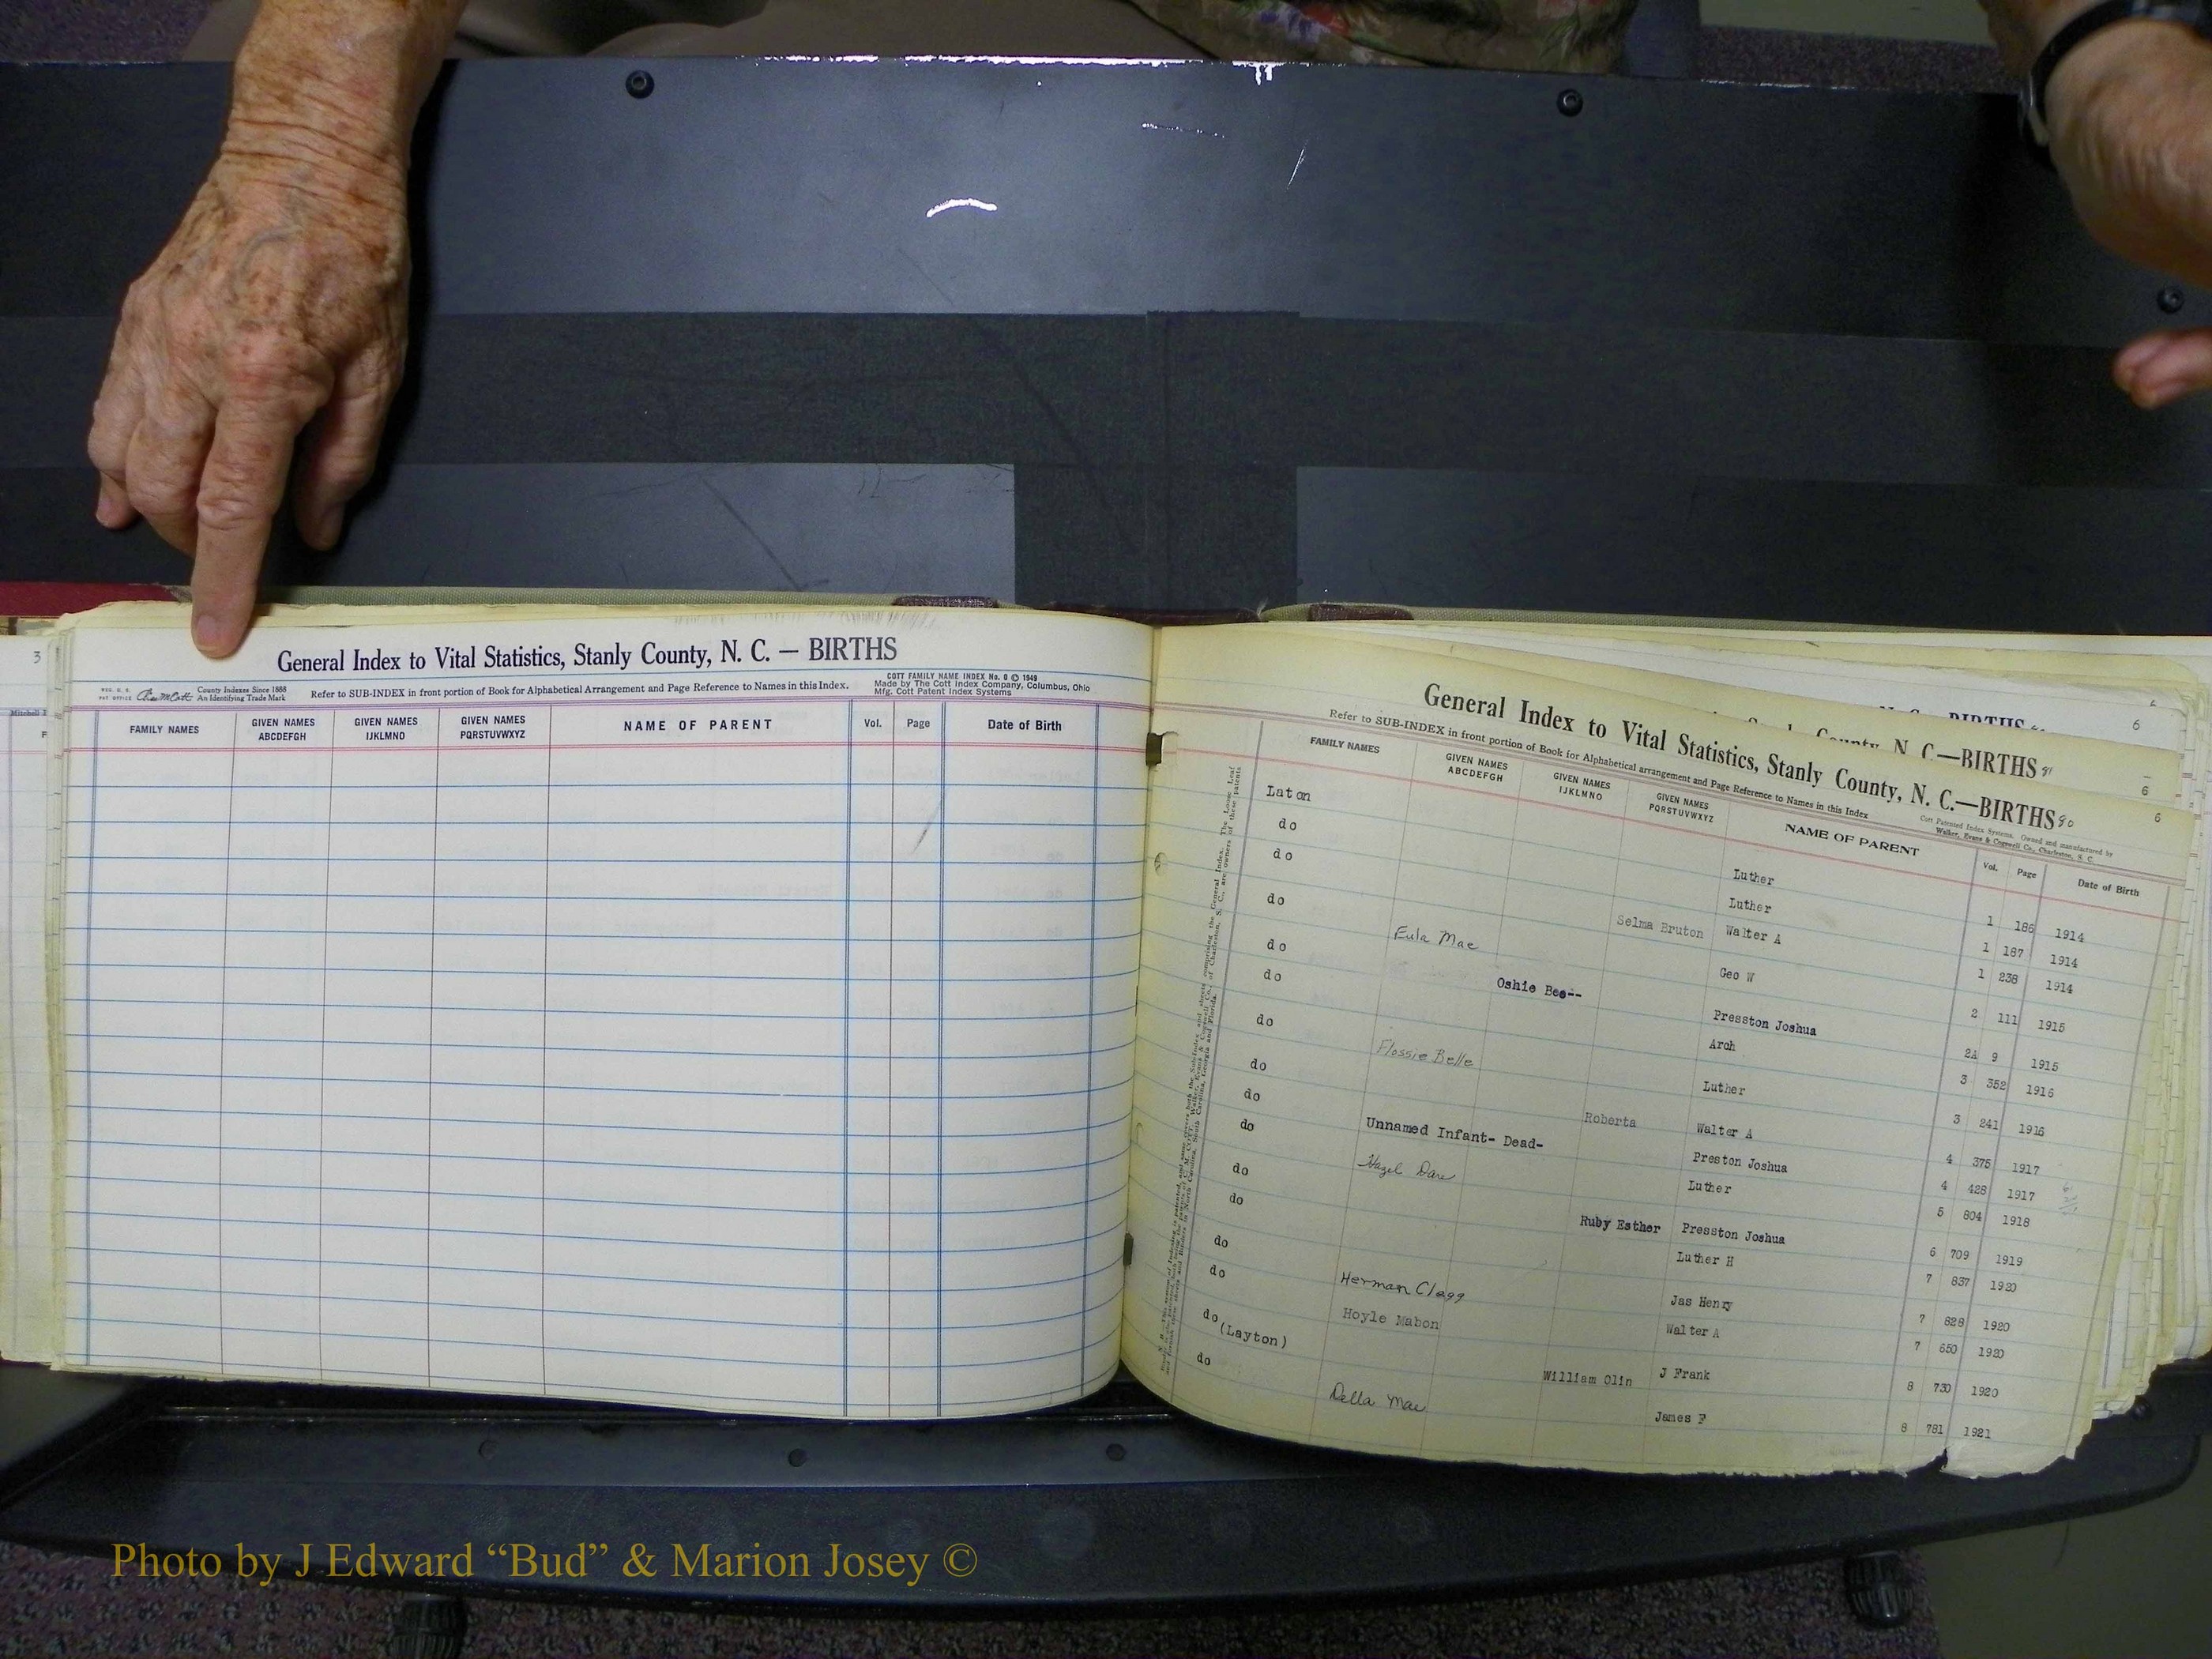 General Index to Vital Statistics, Stanly County, N. C. — BIRTHS
REG. U. S. PAT OFFICE County Indexes Since 1888 An Identifying Trade Mark
Refer to SUB-INDEX in front portion of Book for Alphabetical Arrangement and Page Reference to Names in this Index.
COTT FAMILY NAME INDEX No. 0 © 1949
Made by The Cott Index Company, Columbus, Ohio
Mfg. Cott Patent Index Systems
FAMILY NAMES GIVEN NAMES ABCDEFGH GIVEN NAMES IJKLMNO GIVEN NAMES PQRSTUVWXYZ NAME OF PARENT Vol. Page Date of Birth
3
6
BIRTHS
6
County, N. C.—BIRTHS 91
6
General Index to Vital Statistics, Stanly County, N. C.—BIRTHS 90
Refer to SUB-INDEX in front portion of Book for Alphabetical arrangement and Page Reference to Names in this Index
Cott Patented Index Systems. Owned and manufactured by
Walker, Evans & Cogswell Co., Charleston, S. C.
FAMILY NAMES GIVEN NAMES ABCDEFGH GIVEN NAMES IJKLMNO GIVEN NAMES PQRSTUVWXYZ NAME OF PARENT Vol. Page Date of Birth
Laton Luther 1 186 1914
do Luther 1 187 1914
do Selma Bruton Walter A 1 238 1914
do Eula Mae Geo W 2 111 1915
do Oshie Bee-- Presston Joshua 2A 9 1915
do Arch 3 352 1916
do Flossie Belle Luther 3 241 1916
do Roberta Walter A 4 375 1917
do Unnamed Infant- Dead- Preston Joshua 4 428 1917
do Hazel Dare Luther 5 804 1918
do Ruby Esther Presston Joshua 6 709 1919
do Luther H 7 837 1920
do Herman Clegg Jas Henry 7 828 1920
do Hoyle Mabon Walter A 7 650 1920
do (Layton) William Olin J Frank 8 730 1920
do Della Mae James F 8 781 1921
Photo by J Edward “Bud” & Marion Josey ©